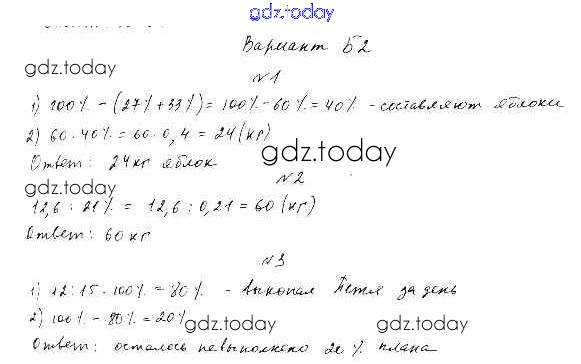 gdz.today
Вариант Б2
gdz.today
№1
1) 100% - (27% + 33%) = 100% - 60% = 40% - составляют яблоки
2) 60 · 40% = 60 · 0,4 = 24 (кг)
Ответ: 24 кг яблок
gdz.today
gdz.today
№2
12,6 : 21% = 12,6 : 0,21 = 60 (кг)
Ответ: 60 кг
№3
1) 12 : 15 · 100% = 80% - выкопал Петя за день
2) 100% - 80% = 20%
gdz.today
gdz.today
Ответ: осталось невыполнено 20 % плана